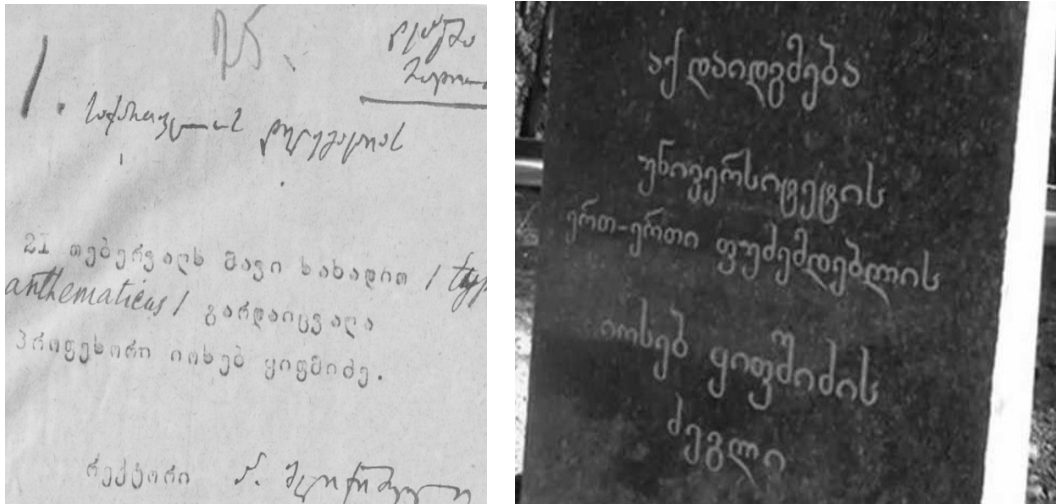 1.
საქართველოს დელეგაციას
21 თებერვალს შავი სახადით / typ
anthematicus / გარდაიცვალა
პროფესორი იოსებ ყიფშიძე.
რექტორი
აქ დაიდგმება
უნივერსიტეტის
ერთ-ერთი ფუძემდებლის
იოსებ ყიფშიძის
ძეგლი